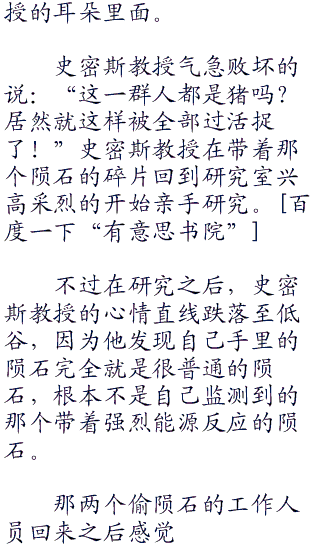 授的耳朵里面。
史密斯教授气急败坏的
说：“这一群人都是猪吗？
居然就这样被全部过活捉
了！”史密斯教授在带着那
个陨石的碎片回到研究室兴
高采烈的开始亲手研究。[百
度一下“有意思书院”]
不过在研究之后，史密
斯教授的心情直线跌落至低
谷，因为他发现自己手里的
陨石完全就是很普通的陨
石，根本不是自己监测到的
那个带着强烈能源反应的陨
石。
那两个偷陨石的工作人
员回来之后感觉